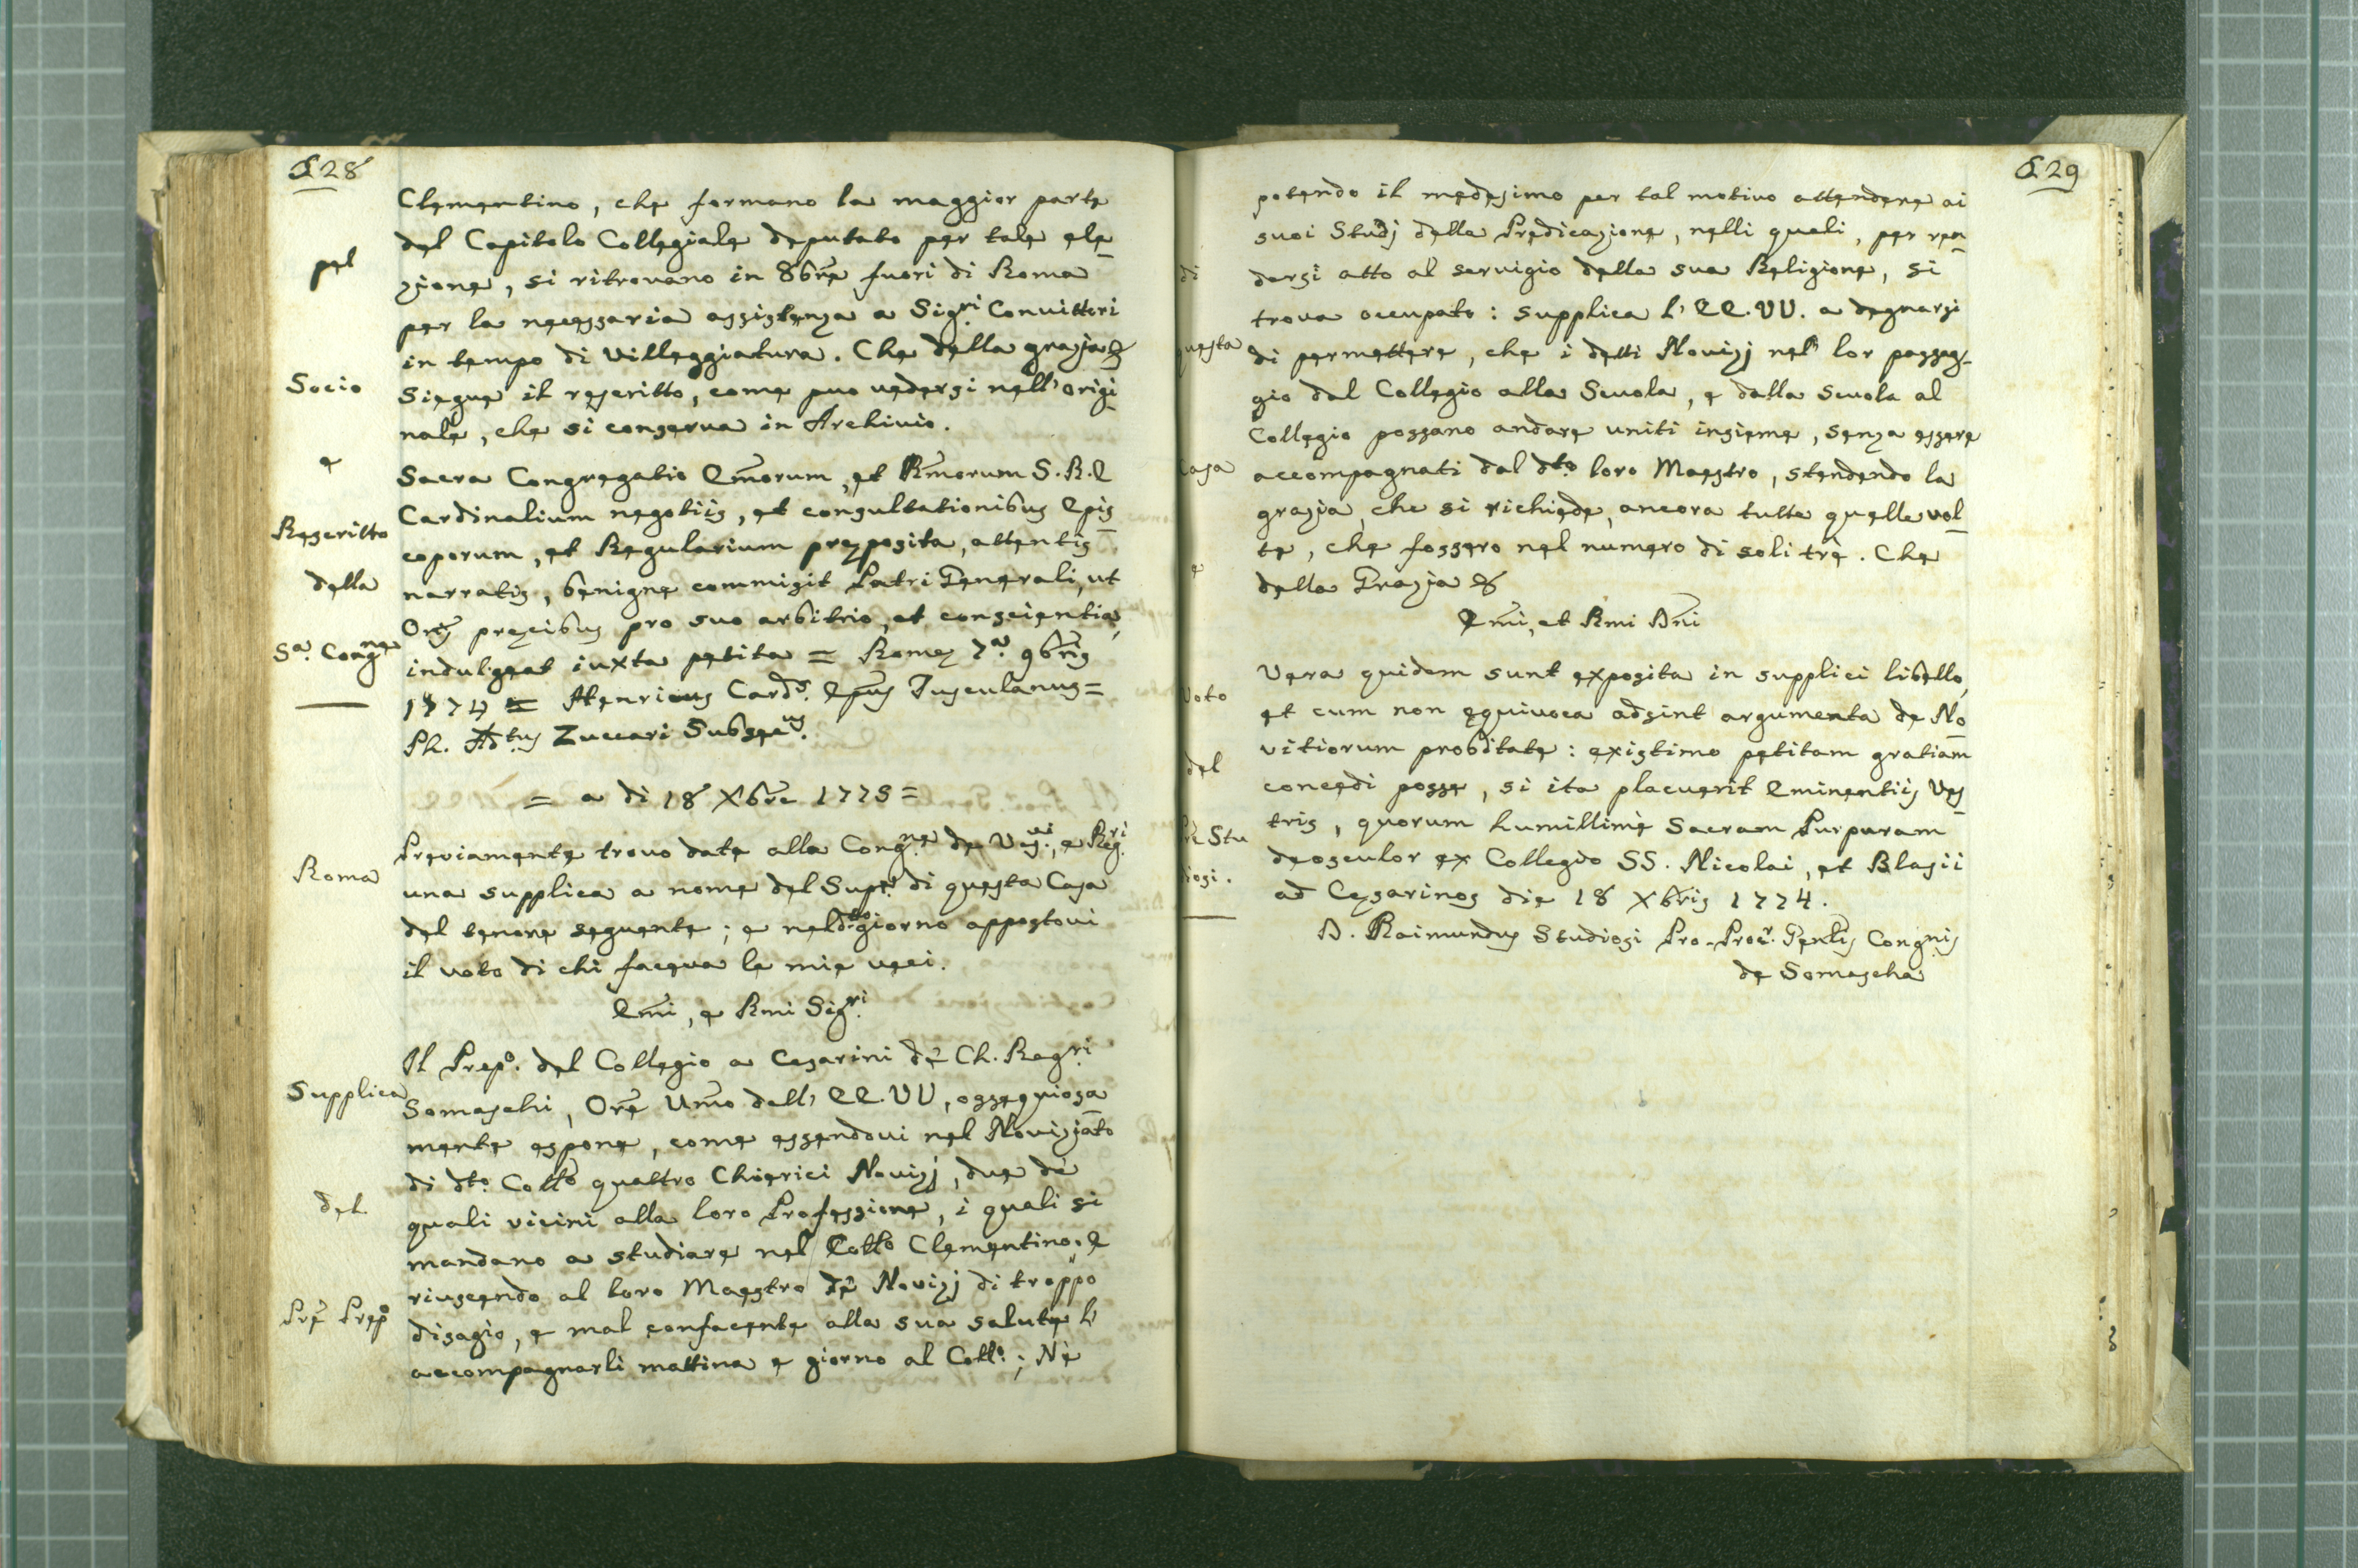 228
Clementino, che formano la maggior parte
del Capitolo Collegiale deputato per tale ele
pel
zione, si ritrovano in 8bre fuori di Roma
per la necessaria assistenza a Sigri Convittori
in tempo di Villeggiatura. Che della grazia &
Socio
Siegue il rescritto, come puo vedersi nell' origi
nale, che si conserva in Archivio.
e
Sacra Congregatio Emorum, et Rmorum S. R. E
Cardinalium negotiis, et consultationibus Epis
Rescritto
coporum, et Regularium preposita, attentis
della
narratis, benigne commisit Patri Generali, ut
Oris precibus pro suo arbitrio, et conscientia,
Sa. Congne
indulgeat iuxta petita = Rome 7a. 9bris
1774 = Henricus Cards. Epus Tusculanus =
Ph. Adtus Zuccari Subsecus.
= a di 18 Xbre 1775 =
Previamente trovo date alla Congne. de Vesvi., e Regri.
Roma
una supplica a nome del Supe. di questa Casa
del tenore seguente; e nel dto. giorno appostovi
il voto di chi faceva le mie veci.
Emi, e Rmi Sigri.
Il Prepo. del Collegio a Cesarini dè Ch. Regri.
Supplica
Somaschi, Ore Umo dell' EE. VV, ossequiosa
mente espone, come essendovi nel Noviziato
di dto. Collo quattro Chierici Novizj, due dè
del
quali vicini alla loro Professione, i quali si
mandano a studiare nel Collo Clementino, e
riuscendo al loro Maestro dè Novizj di troppo
Pre Prepo
disagio, e mal confacente alla sua salute l'
accompagnarli mattina e giorno al Collo.; Nè
229
potendo il medesimo per tal motivo attendere ai
suoi Studj della Predicazione, nelli quali, per ren
di
dersi atto al servigio della sua Religione, si
trova occupato: supplica l' EE. VV. a degnarsi
questa
di permettere, che i detti Novizj nel lor passag-
gio dal Collegio alla Scuola, e dalla Scuola al
Collegio possano andare uniti insieme, senza essere
Casa
accompagnati dal dto. loro Maestro, stendendo la
grazia, che si richiede, ancora tutte quelle vol
te, che fossero nel numero di soli trè. Che
e
della Grazia &
Emi, et Rmi Dni
Vera quidem sunt exposita in supplici libello,
Voto
et cum non equivoca adsint argumenta de No
vitiorum probitate: existimo petitam gratiam
del
concedi posse, si ita placuerit Eminentiis Ves
tris, quorum humillimè Sacram Purpuram
Pre Stu
deosculor ex Collegio SS. Nicolai, et Blasii
diosi.
ad Cesarinos die 18 Xbris 1774.
D. Raimundus Studiosi Pro-Procr. Genlis Congnis
de Somascha